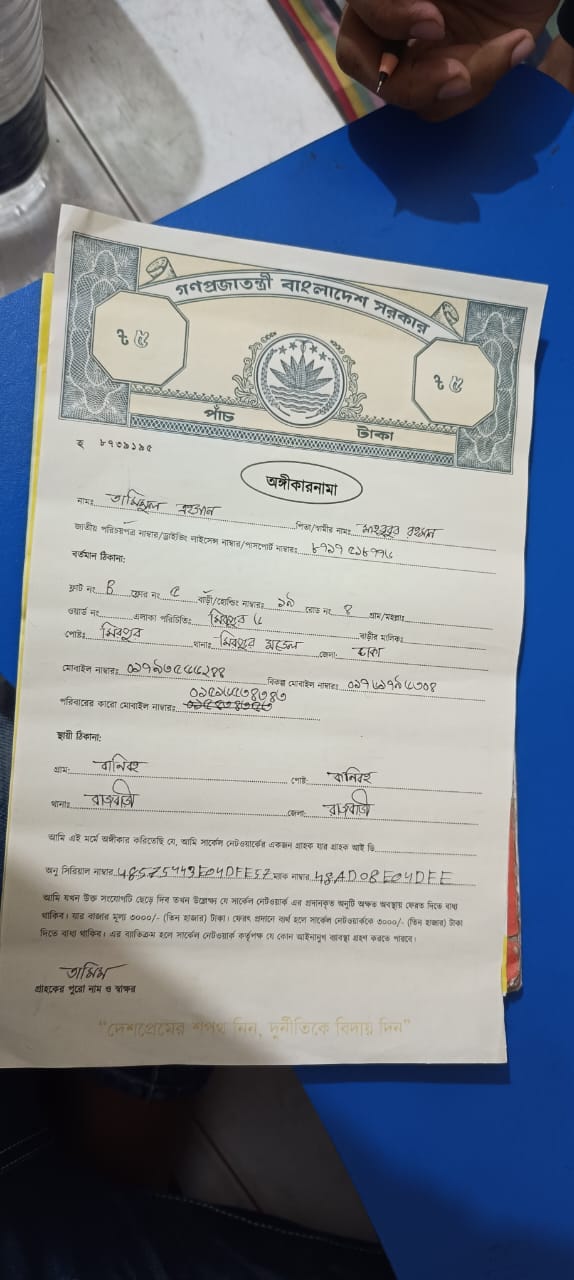 গণপ্রজাতন্ত্রী বাংলাদেশ সরকার
৳ ৫
৳ ৫
পাঁচ টাকা
৮৭৩৯১৯৫
অঙ্গীকারনামা
নামঃ পিতা/স্বামীর নামঃ মাহবুবুর রহমান
জাতীয় পরিচয়পত্র নাম্বার/ড্রাইভিং লাইসেন্স নাম্বার/পাসপোর্ট নাম্বারঃ
বর্তমান ঠিকানা:
ফ্লাট নং B ফ্লোর নং ৫ বাড়ী/হোল্ডিং নাম্বারঃ ১৯ রোড নং গ্রাম/মহল্লাঃ
ওয়ার্ড নং এলাকা পরিচিতিঃ মিরপুর বাড়ীর মালিকঃ
পোষ্টঃ মিরপুর থানাঃ মিরপুর মডেল জেলাঃ ঢাকা
মোবাইল নাম্বারঃ বিকল্প মোবাইল নাম্বারঃ
পরিবারের কারো মোবাইল নাম্বারঃ
স্থায়ী ঠিকানা:
গ্রামঃ বানিবহ পোষ্টঃ বানিবহ
থানাঃ রাজবাড়ী জেলাঃ রাজবাড়ী
আমি এই মর্মে অঙ্গীকার করিতেছি যে, আমি সার্কেল নেটওয়ার্কের একজন গ্রাহক যার গ্রাহক আই ডি
অনু সিরিয়াল নাম্বার 48575443E04DFE57 ম্যাক নাম্বার 48AD08E04DFE
আমি যখন উক্ত সংযোগটি ছেড়ে দিব তখন উল্লেক্ষ যে সার্কেল নেটওয়ার্ক এর প্রদানকৃত অনুটি অক্ষত অবস্থায় ফেরত দিতে বাধ্য
থাকিব। যার বাজার মূল্য ৩০০০/- (তিন হাজার) টাকা। ফেরৎ প্রদানে ব্যর্থ হলে সার্কেল নেটওয়ার্ককে ৩০০০/- (তিন হাজার) টাকা
দিতে বাধ্য থাকিব। এর ব্যতিক্রম হলে সার্কেল নেটওয়ার্ক কর্তৃপক্ষ যে কোন আইনানুগ ব্যবস্থা গ্রহণ করতে পারবে।
তামিম
গ্রাহকের পুরো নাম ও স্বাক্ষর
“দেশপ্রেমের শপথ নিন, দুর্নীতিকে বিদায় দিন”